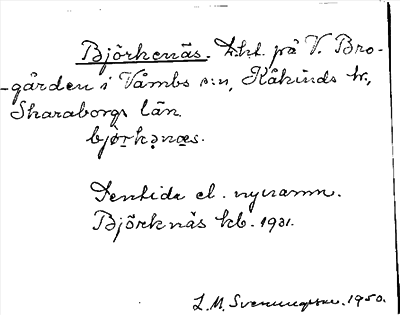 Björkenäs. Lht. på V. Bro-
-gården i Våmbs s:n, Kåkinds hd,
Skaraborgs län.
björkənæs.
Fentida el. nynamn.
Björknäs kb. 1931.
L. M. Svenungsson. 1950.